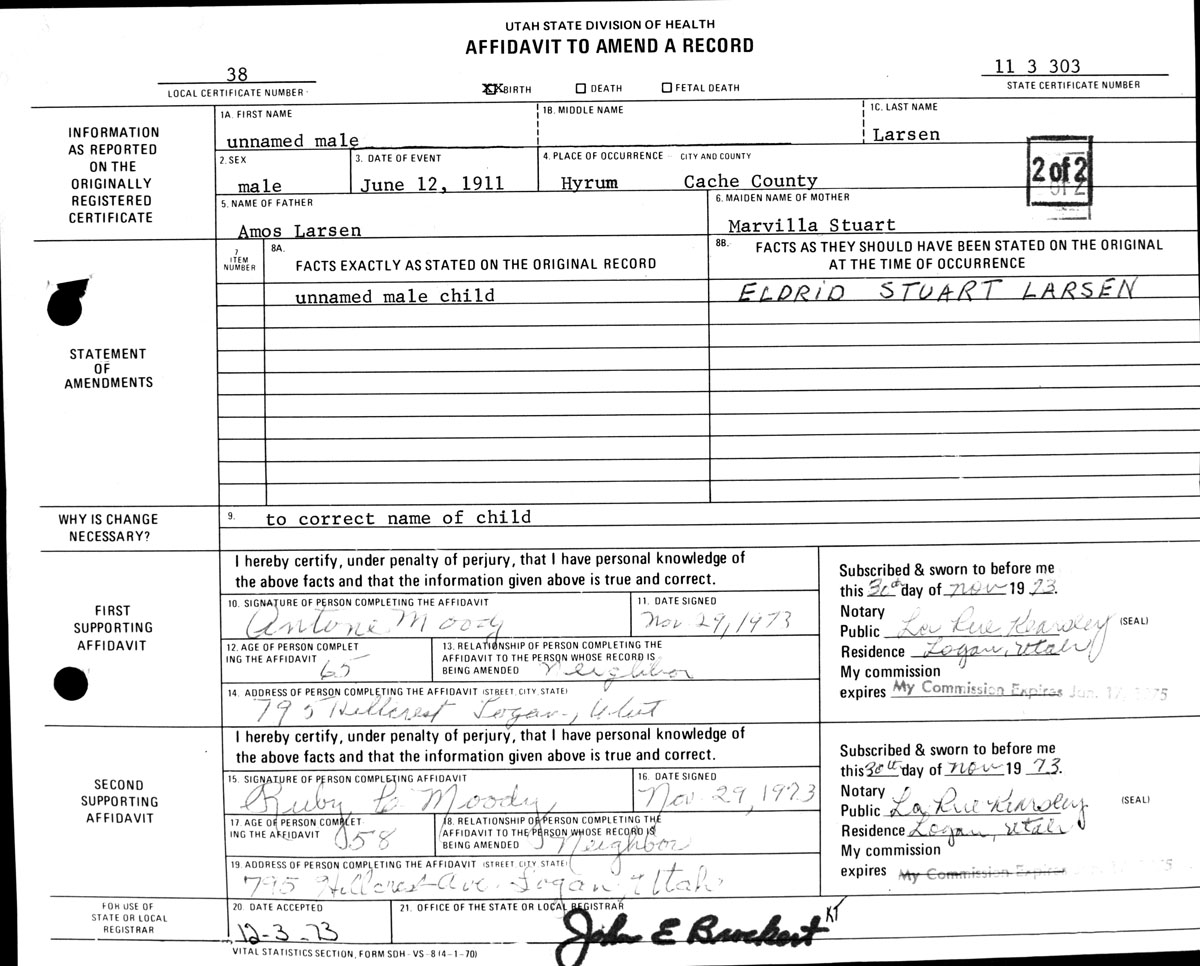 UTAH STATE DIVISION OF HEALTH
AFFIDAVIT TO AMEND A RECORD
38
LOCAL CERTIFICATE NUMBER
XX BIRTH DEATH FETAL DEATH
11 3 303
STATE CERTIFICATE NUMBER
INFORMATION
AS REPORTED
ON THE
ORIGINALLY
REGISTERED
CERTIFICATE
1A. FIRST NAME
unnamed male
1B. MIDDLE NAME
1C. LAST NAME
Larsen
2. SEX
male
3. DATE OF EVENT
June 12, 1911
4. PLACE OF OCCURRENCE - CITY AND COUNTY
Hyrum Cache County
2 of 2
5. NAME OF FATHER
Amos Larsen
6. MAIDEN NAME OF MOTHER
Marvilla Stuart
STATEMENT
OF
AMENDMENTS
7
ITEM
NUMBER
8A.
FACTS EXACTLY AS STATED ON THE ORIGINAL RECORD
8B.
FACTS AS THEY SHOULD HAVE BEEN STATED ON THE ORIGINAL
AT THE TIME OF OCCURRENCE
unnamed male child
ELDRID STUART LARSEN
WHY IS CHANGE
NECESSARY?
9.
to correct name of child
FIRST
SUPPORTING
AFFIDAVIT
I hereby certify, under penalty of perjury, that I have personal knowledge of
the above facts and that the information given above is true and correct.
10. SIGNATURE OF PERSON COMPLETING THE AFFIDAVIT
Antone Moody
11. DATE SIGNED
Nov 29, 1973
12. AGE OF PERSON COMPLET
ING THE AFFIDAVIT
65
13. RELATIONSHIP OF PERSON COMPLETING THE
AFFIDAVIT TO THE PERSON WHOSE RECORD IS
BEING AMENDED
Neighbor
14. ADDRESS OF PERSON COMPLETING THE AFFIDAVIT (STREET, CITY, STATE)
795 Hillcrest Logan,
Subscribed & sworn to before me
this 30th day of Nov 19 73.
Notary
Public La Rue Kearsley (SEAL)
Residence Logan, Utah
My commission
expires My Commission Expires Jan. 17, 1975
SECOND
SUPPORTING
AFFIDAVIT
I hereby certify, under penalty of perjury, that I have personal knowledge of
the above facts and that the information given above is true and correct.
15. SIGNATURE OF PERSON COMPLETING AFFIDAVIT
Ruby Moody
16. DATE SIGNED
Nov. 29, 1973
17. AGE OF PERSON COMPLET
ING THE AFFIDAVIT
58
18. RELATIONSHIP OF PERSON COMPLETING THE
AFFIDAVIT TO THE PERSON WHOSE RECORD IS
BEING AMENDED
Neighbor
19. ADDRESS OF PERSON COMPLETING THE AFFIDAVIT (STREET, CITY, STATE)
795 Hillcrest Ave. Logan, Utah
Subscribed & sworn to before me
this 30th day of Nov 19 73.
Notary
Public La Rue Kearsley (SEAL)
Residence Logan, Utah
My commission
expires My Commission Expires
FOR USE OF
STATE OR LOCAL
REGISTRAR
20. DATE ACCEPTED
12-3-73
21. OFFICE OF THE STATE OR LOCAL REGISTRAR
John E Brockert KT
VITAL STATISTICS SECTION, FORM SDH - VS - 8 (4-1-70)